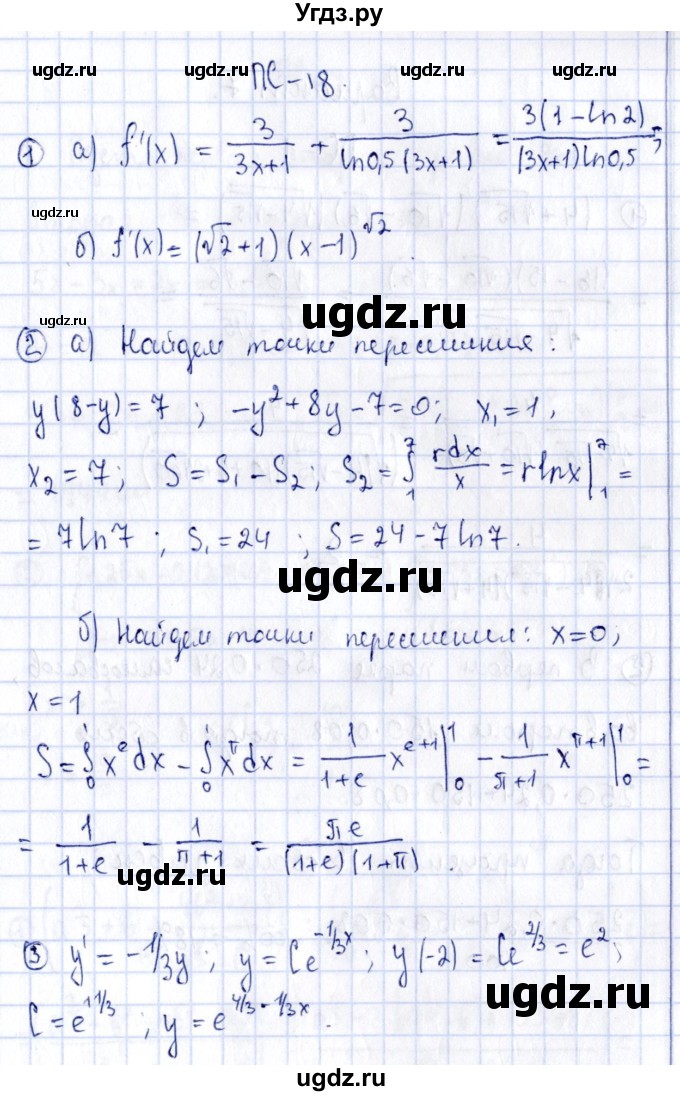 Угдз.ру
ugdz.ru ugdz.ru ugdz.ru
ПС-18.
① а) f'(x) = 3/(3x+1) + 3/(ln0,5(3x+1)) = 3(1-ln2)/((3x+1)ln0,5);
ugdz.ru
б) f'(x) = (√2+1)(x-1)^√2.
ugdz.ru
② а) Найдем точки пересечения:
y(8-y)=7; -y²+8y-7=0; x₁=1,
ugdz.ru ugdz.ru ugdz.ru
x₂=7; S=S₁-S₂; S₂=∫₁⁷ 7dx/x = 7lnx|₁⁷ =
= 7ln7; S₁=24; S=24-7ln7.
ugdz.ru
б) Найдем точки пересечения: x=0;
x=1
S=∫₀¹x^e dx - ∫₀¹x^π dx = 1/(1+e) x^(e+1)|₀¹ - 1/(π+1) x^(π+1)|₀¹ =
= 1/(1+e) - 1/(π+1) = πe/((1+e)(1+π)).
ugdz.ru ugdz.ru
③ y' = -1/3y; y=Ce^(-1/3x); y(-2)=Ce^(2/3)=e²;
ugdz.ru
C=e^(1 1/3); y=e^(4/3-1/3x).
ugdz.ru
ugdz.ru